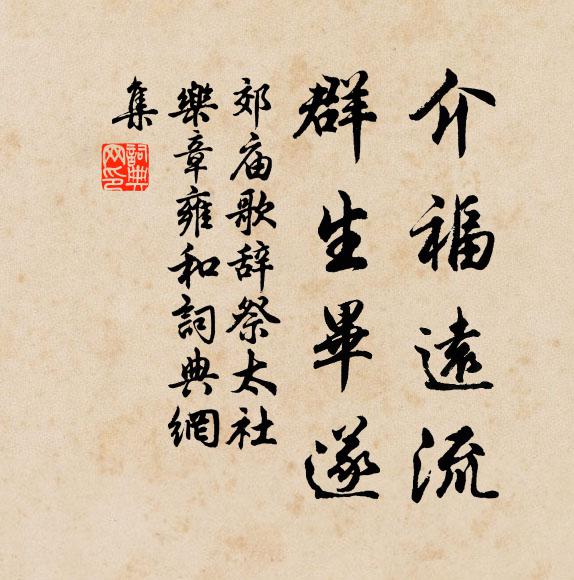 介福遠流
群生畢遂
郊庙歌辞祭太社
樂章雍和詞典網
集
詞典
网印